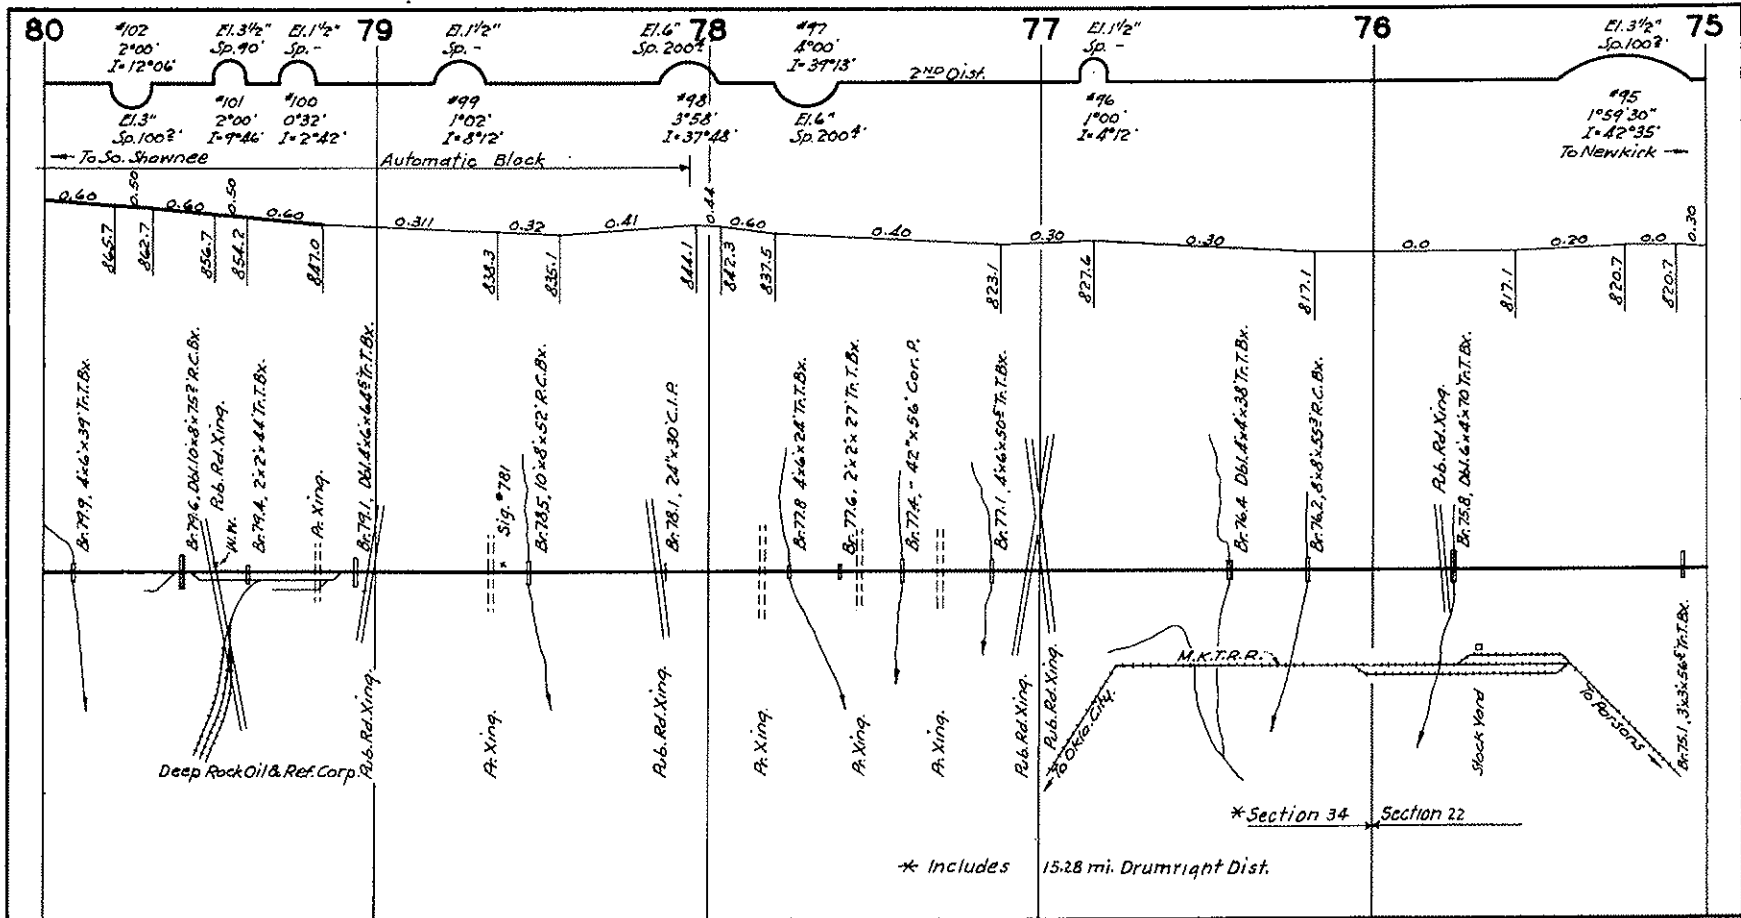 80
79
78
77
76
75
#102
2°00'
I=12°06'
El.3½"
Sp.90'
El.1½"
Sp.-
El.1½"
Sp.-
El.6"
#97
4°00'
I=39°13'
2ND Dist.
El.1½"
Sp.-
El.3½"
El.3"
#101
2°00'
I=9°46'
#100
0°32'
I=2°42'
#99
1°02'
I=8°12'
#98
3°58'
I=37°48'
El.6"
#96
1°00'
I=4°12'
#95
1°59'30"
I=42°35'
To So. Shawnee
Automatic Block
To Newkirk
0.60
0.50
0.60
0.50
0.60
0.311
0.32
0.41
0.44
0.60
0.40
0.30
0.30
0.0
0.20
0.0
0.30
865.7
862.7
856.7
854.2
847.0
838.3
835.1
844.1
842.3
837.5
823.1
827.6
817.1
817.1
820.7
820.7
Br.79.9, 4'x6'x39' Tr.T.Bx.
Br.79.6, Dbl.10'x8'x75² R.C.Bx.
Pub.Rd.Xing.
W.W.
Br.79.4, 2'x2'x44' Tr.T.Bx.
Pr.Xing.
Br.79.1, Dbl.4'x6'x64⁵ Tr.T.Bx.
Sig.#781
Br.78.5, 10'x8'x52' R.C.Bx.
Br.78.1, 24"x30' C.I.P.
Br.77.8 4'x6'x24' Tr.T.Bx.
Br.77.6, 2'x2'x27' Tr.T.Bx.
Br.77.4,- 42"x56' Cor.P.
Br.77.1, 4'x6'x50⁵ Tr.T.Bx.
Br.76.4 Dbl.4'x4'x38' Tr.T.Bx.
Br.76.2, 8'x8'x55³ R.C.Bx.
Pub.Rd.Xing
Br.75.8, Dbl.6'x4'x70' Tr.T.Bx.
Deep Rock Oil & Ref. Corp.
Pub.Rd.Xing.
Pr.Xing.
Pub.Rd.Xing.
Pr.Xing.
Pr.Xing.
Pr.Xing.
Pub.Rd.Xing.
Pub.Rd.Xing.
To Okla.City.
M.K.T.R.R.
Stock Yard
To Parsons
Br.75.1, 3'x3'x56⁵ Tr.T.Bx.
*Section 34
Section 22
* Includes 15.28 mi. Drumright Dist.